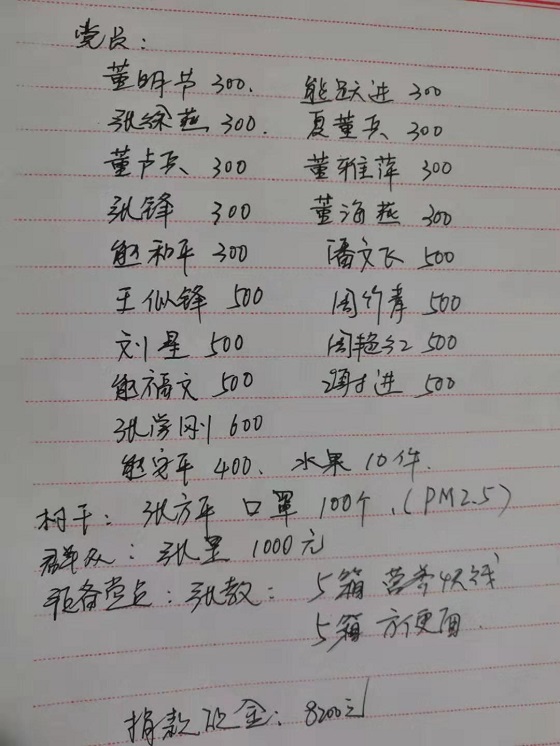 党员:
董明节 300. 熊跃进 300
张綵燕 300. 夏董兵 300
董卢兵 300 董雅萍 300
张锋 300 董海燕 300
熊和平 300 潘文飞 500
王似锋 500 周竹孝 500
刘星 500 周艳红 500
熊福文 500 进 500
张学刚 600
熊守平 400、水果 10件.
村干: 张方平 口罩 100个.(PM2.5)
群众: 张星 1000元
预备党员: 张敖: 5箱 营养快线
5箱 方便面.
捐款现金: 8200元